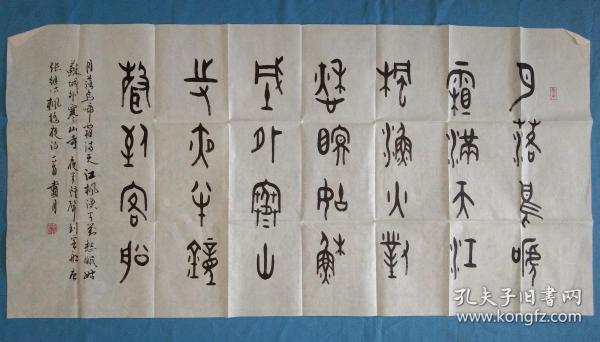 月落烏啼
霜滿天江
楓漁火對
愁眠姑蘇
城外寒山
寺夜半鐘
聲到客船
月落烏啼霜满天江楓渔火對愁眠姑
蘇城外寒山寺夜半鐘聲到客船唐
張継诗楓橋夜泊
孔夫子旧书网
www.kongfz.com